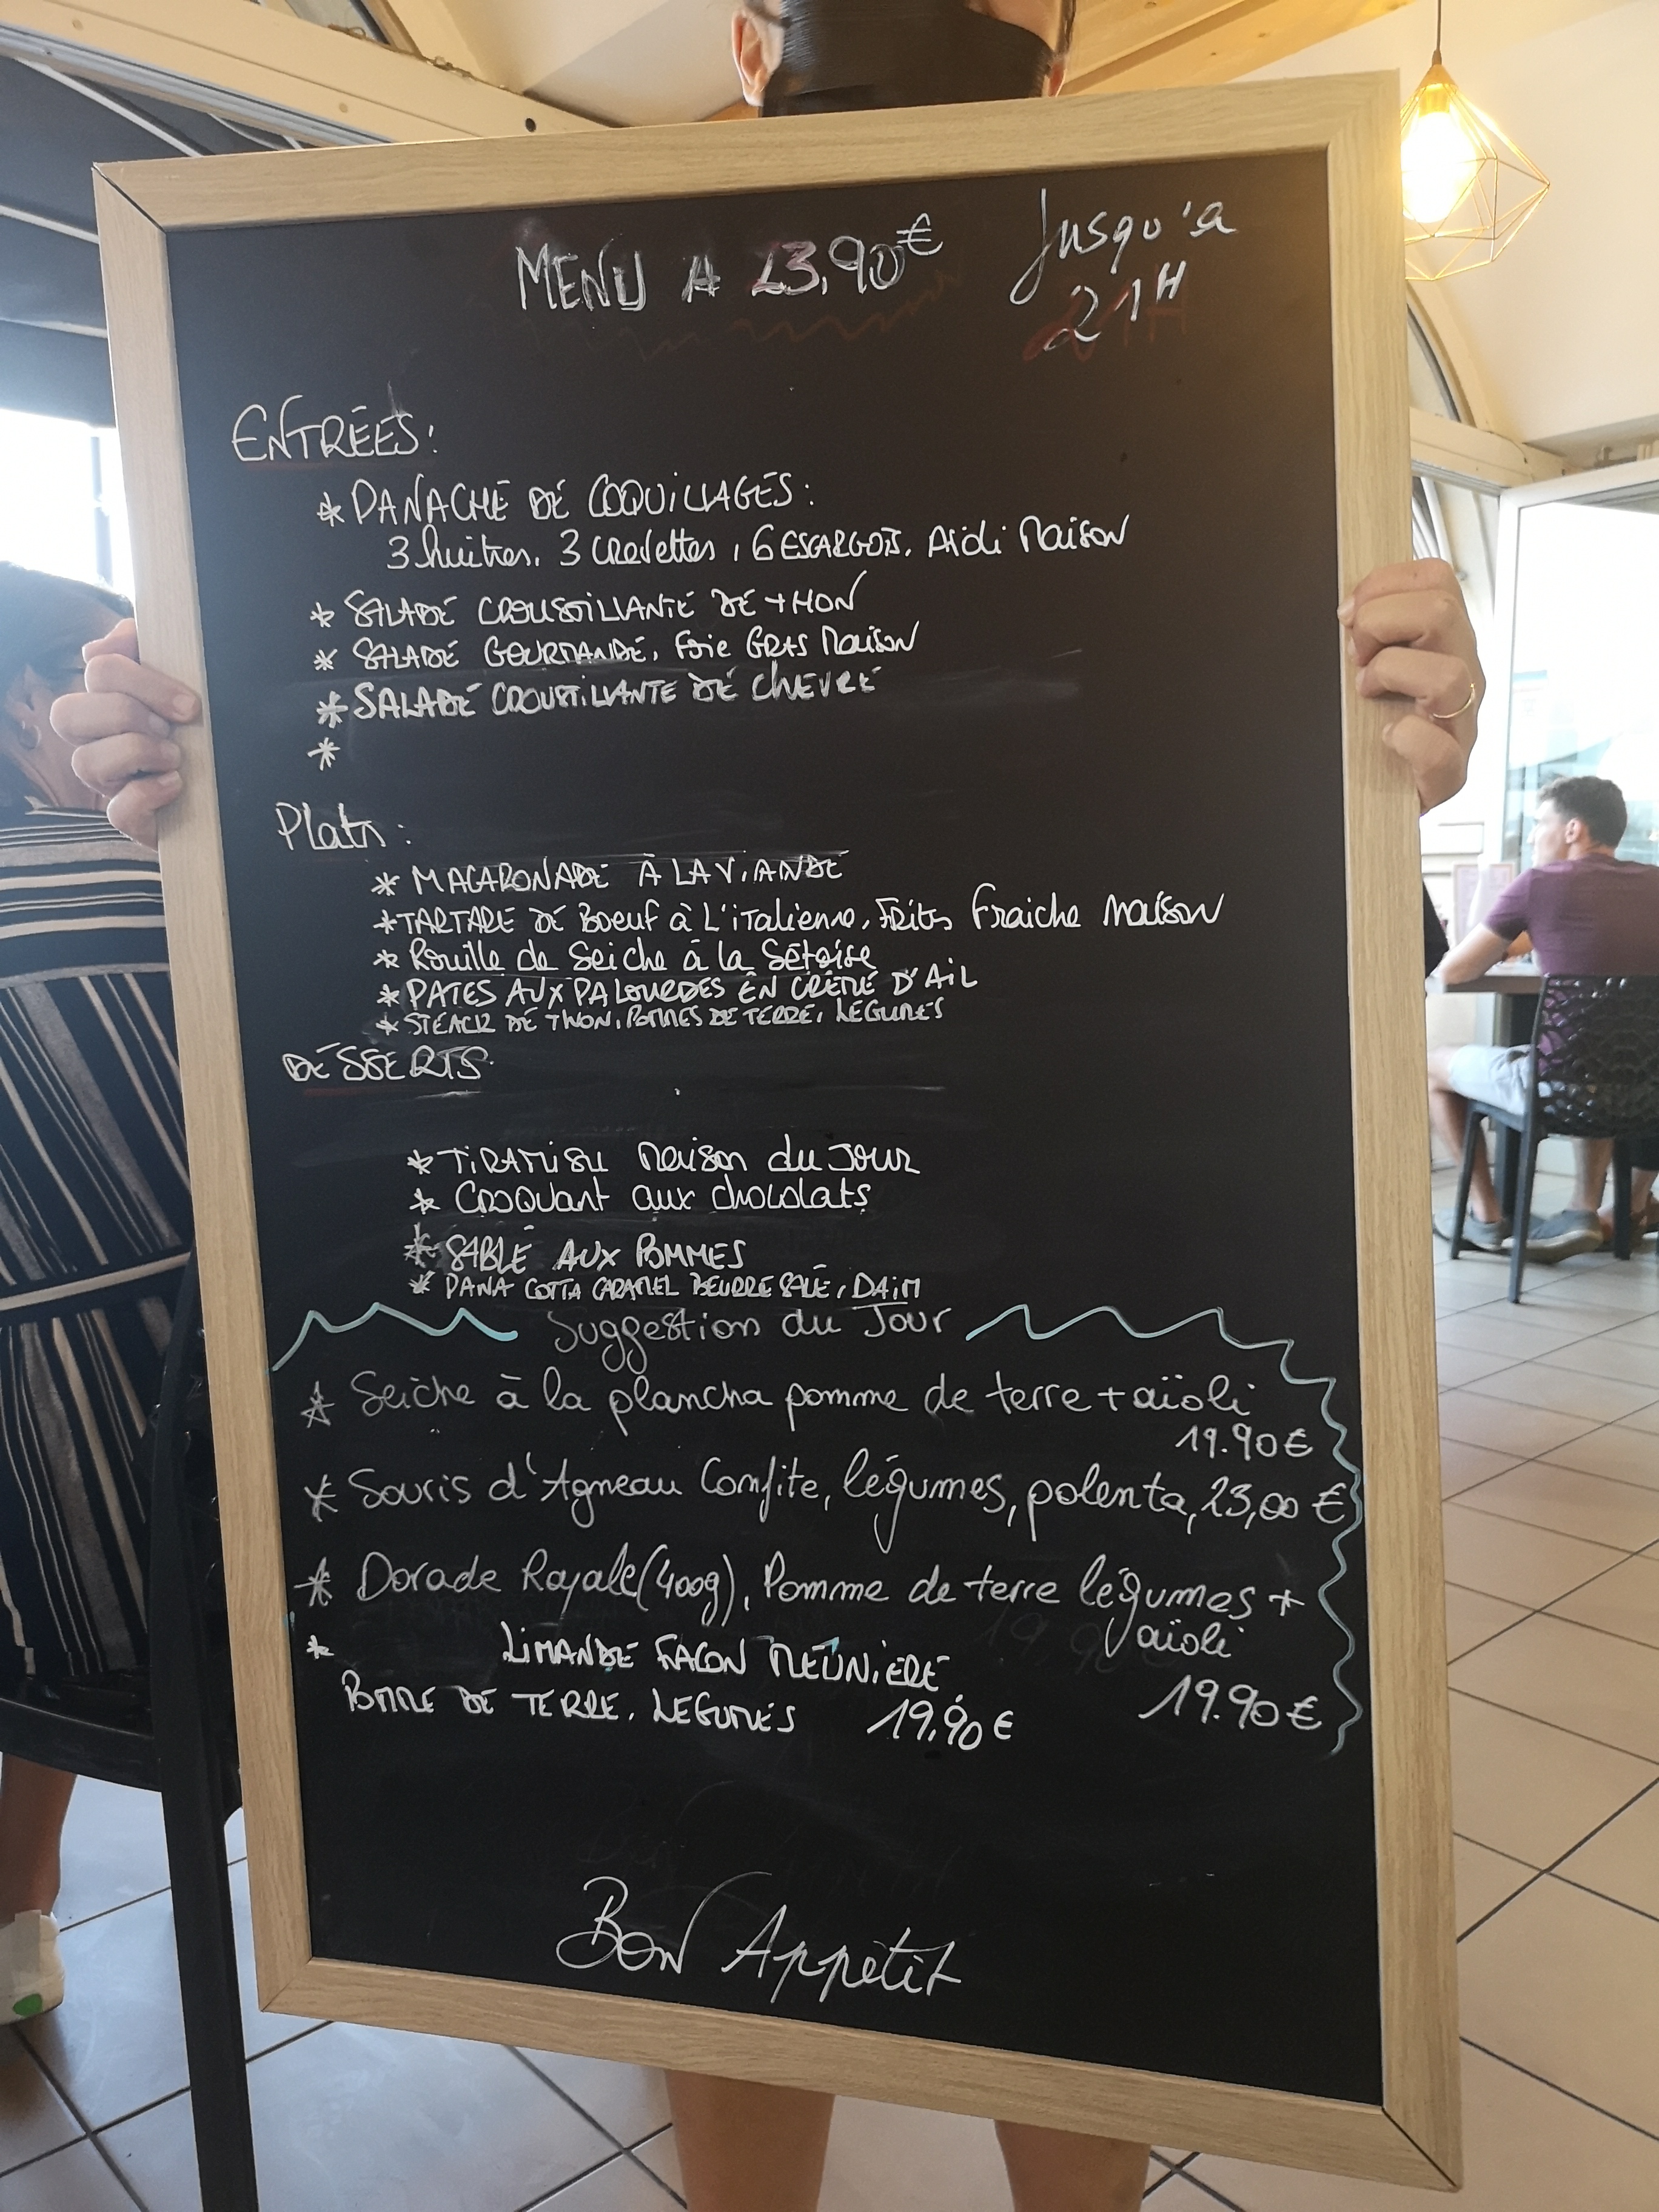 MENU A 23,90€
Jusqu'a
21H
ENTRÉES:
* PANACHÉ DE COQUILLAGES:
3 huitres, 3 crevettes, 6 ESCARGOTS, Aïoli Maison
* SALADE CROUSTILLANTE DE THON
* SALADE GOURMANDE, Foie GRAS Maison
* SALADE CROUSTILLANTE DE CHEVRE
*
Plats:
* MACARONADE À LA VIANDE
* TARTARE DE Boeuf à L'italienne, Frites Fraiche Maison
* Rouille de Seiche à la Sétoise
* PATES AUX PALOURDES EN CRÈME D'AiL
* STEACK DE THON, POMMES DE TERRE, LÉGUMES
DESSERTS
* TiRAMiSU Maison du JOUR
* CROQUANT aux chocolats
* SABLÉ AUX POMMES
* PANA COTTA CARAMEL BEURRE SALÉ, DAiM
Suggestion du Jour
* Seiche à la plancha pomme de terre + aïoli
19.90€
* Souris d'Agneau Confite, légumes, polenta, 23,00 €
* Dorade Royale (400g), Pomme de terre légumes +
aïoli
19.90€
* LiMANDE FACON MEUNiÈRE
POMME DE TERRE, LEGUMES 19,90€
BON Appétit